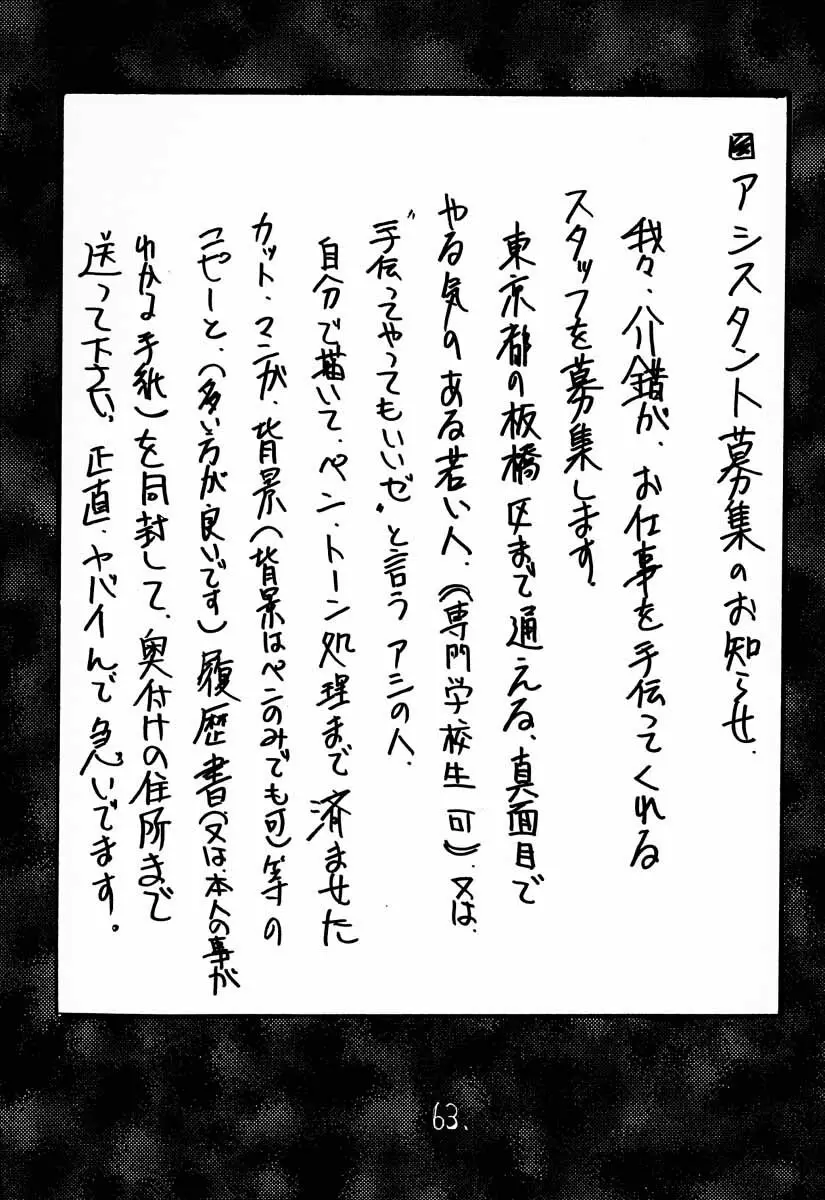 アシスタント募集のお知らせ.
我々、介錯が、お仕事を手伝ってくれる
スタッフを募集します。
東京都の板橋区まで通える、真面目で
やる気のある若い人、《専門学校生可》、又は、
“手伝ってやってもいいゼ”と言うアシの人、
自分で描いて、ペン、トーン処理まで済ませた
カット、マンガ、背景（背景はペンのみでも可）等の
コピーと、（多い方が良いです）履歴書（又は、本人の事が
わかる手紙）を同封して、奥付けの住所まで
送って下さい。正直、ヤバイんで急いでます。
63.